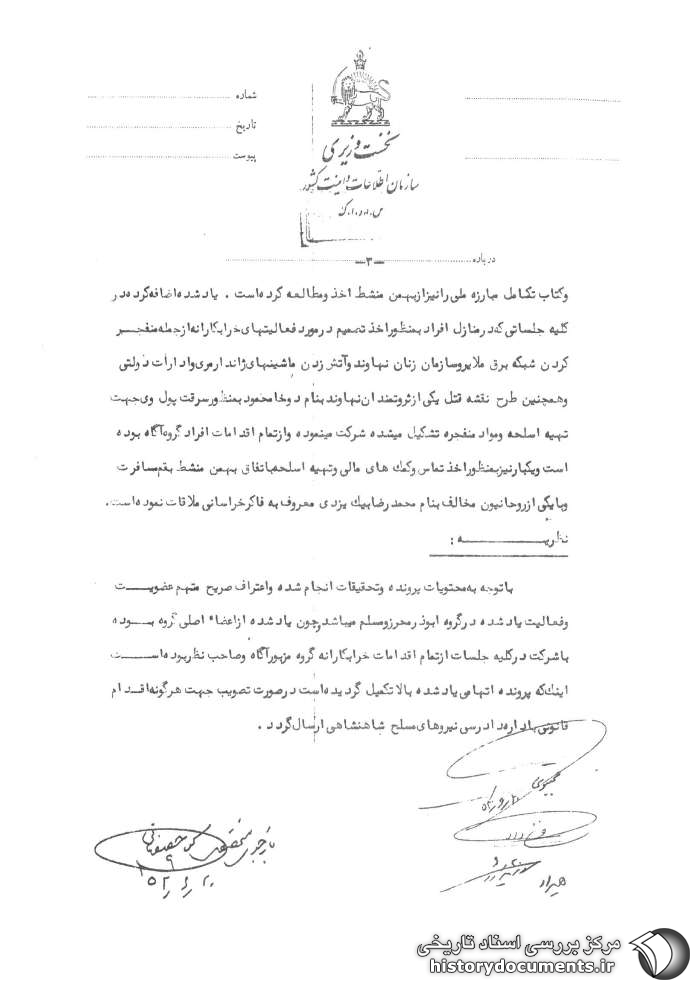 شماره
تاریخ
پیوست
نخست وزیری
سازمان اطلاعات و امنیت کشور
س.ا.و.ا.ک
درباره
-۳-
وکتاب تکامل مبارزه ملی رانیزازبهمن منشط اخذ ومطالعه کرده است . یادشده اضافه کرده در
کلیه جلساتی که در منازل افراد بمنظور اخذ تصمیم در مورد فعالیتهای خرابکارانه ازجمله منفجر
کردن شبکه برق ملایر وسازمان زنان نهاوند وآتش زدن ماشینهای ژاندارمری وادارات دولتی
وهمچنین طرح نقشه قتل یکی ازثروتمندان نهاوند بنام دوخامحمود بمنظور سرقت پول وی جهت
تهیه اسلحه ومواد منفجره تشکیل میشده شرکت مینموده وازتمام اقدامات افراد گروه آگاه بوده
است ویکبارنیزبمنظور اخذ تماس وکمک های مالی وتهیه اسلحه باتفاق بهمن منشط بقم مسافرت
وبا یکی ازروحانیون مخالف بنام محمد رضا بیک یزدی معروف به فاکر خراسانی ملاقات نموده است.
نظریـــه :
باتوجه به محتویات پرونده وتحقیقات انجام شده واعتراف صریح متهم عضویـت
وفعالیت یادشده درگروه ابوذر محرز ومسلم میباشد چون یادشده ازاعضاء اصلی گروه بـوده
باشرکت در کلیه جلسات ازتمام اقدامات خرابکارانه گروه مزبور آگاه وصاحب نظر بوده است
اینک که پرونده اتهامی یادشده بالا تکمیل گردیده است درصورت تصویب جهت هرگونه اقدام
قانونی به اداره دادرسی نیروهای مسلح شاهنشاهی ارسال گردد .
بازجوی
مرکز بررسی اسناد تاریخی
historydocuments.ir